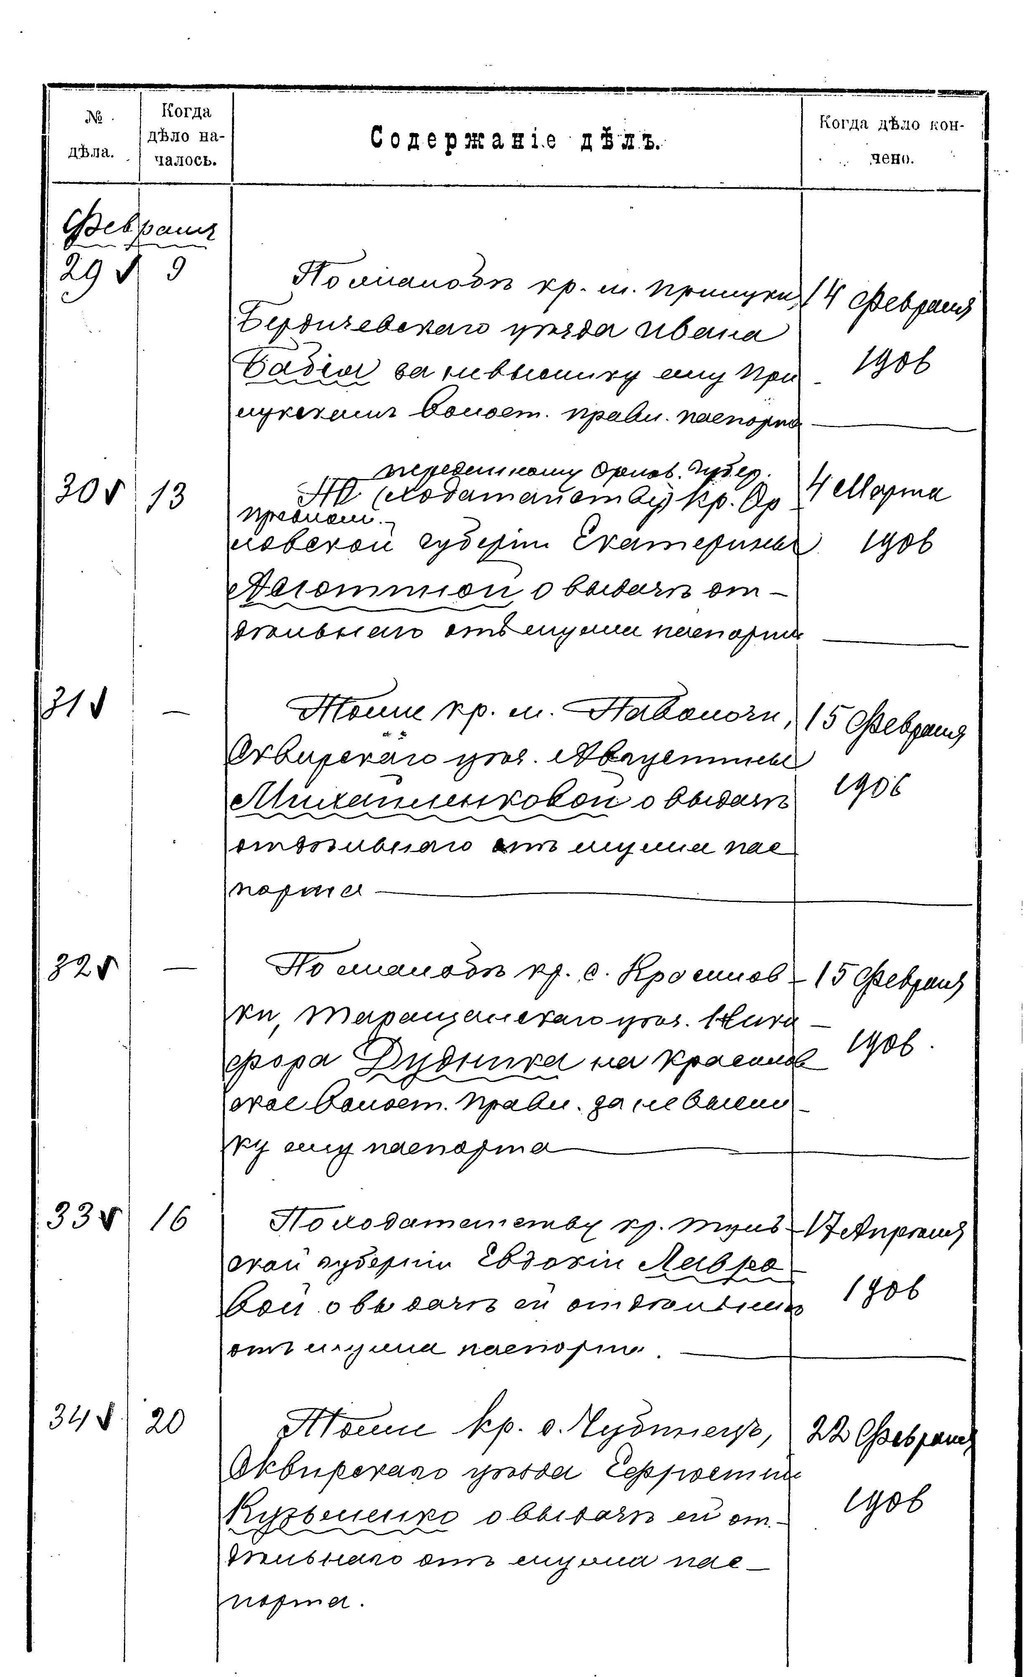 № дѣла.
Когда дѣло началось.
Содержаніе дѣлъ.
Когда дѣло кончено.
Февраля
29 9
По жалобѣ кр. м. Прилуки,
Бердичевскаго уѣзда Ивана
Бабія за невысылку ему При
лукскимъ волост. правл. паспорта
14 Февраля
1906
30 13
переданному Орлов. губер.
По ходатайству кр. Ор
правлен.
ловской губерніи Екатерины
о выдачѣ от-
дѣльнаго отъ мужа паспорта
4 Марта
1906
31 —
Тоже кр. м. Паволочи,
Сквирскаго уѣз. Августины
Михайленковой о выдачѣ
отдѣльнаго отъ мужа пас
порта
15 Февраля
1906
32 —
По жалобѣ кр. с. Красилов-
ки, Таращанскаго уѣз. Ники-
фора Дудника на Красилов
ское волост. правл. за невысыл-
ку ему паспорта
15 Февраля
1906.
33 16
По ходатайству кр. Туль-
ской губерніи Евдокіи Лавро-
вой о выдачѣ ей отдѣльнаго
отъ мужа паспорта.
17 Апрѣля
1906
34 20
Тоже кр. с. Чубинецъ,
Сквирскаго уѣзда Ефросиніи
Кузьменко о выдачѣ ей от-
дѣльнаго отъ мужа пас-
порта.
22 Февраля
1906